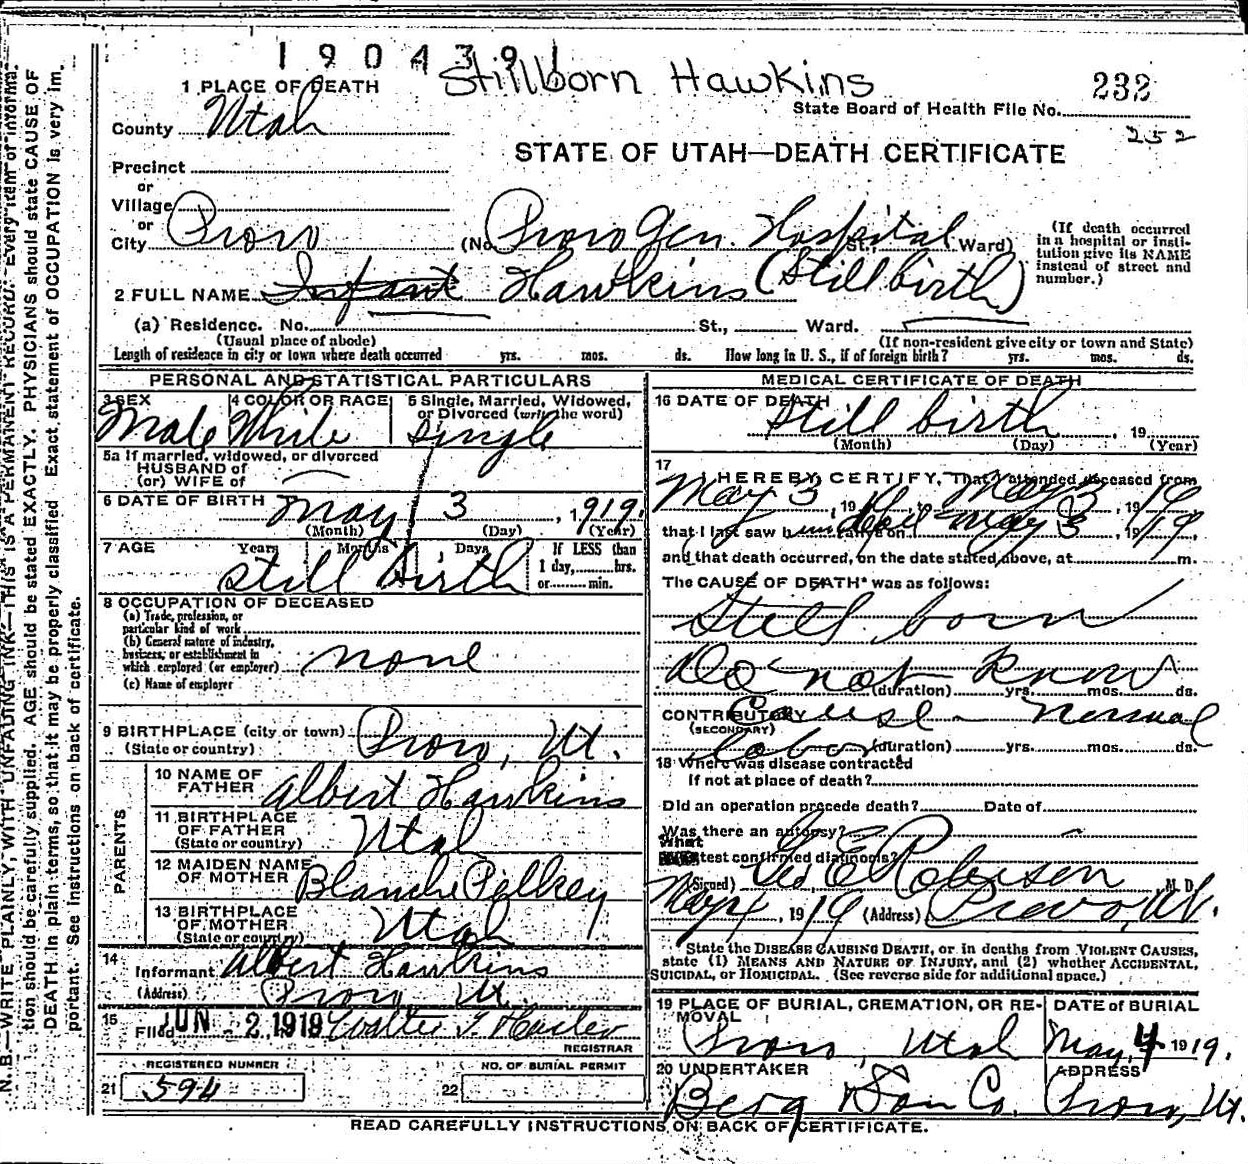 190439
Stillborn Hawkins
232
1 PLACE OF DEATH
State Board of Health File No.
County Utah
252
STATE OF UTAH—DEATH CERTIFICATE
Precinct
or
Village
or
City Provo (No. Provo Gen. Hospital St., Ward)
(If death occurred in a hospital or insti-
tution give its NAME
instead of street and
number.)
2 FULL NAME Infant Hawkins (Stillbirth)
(a) Residence. No. St., Ward.
(Usual place of abode) (If non-resident give city or town and State)
Length of residence in city or town where death occurred yrs. mos. ds. How long in U. S., if of foreign birth? yrs. mos. ds.
PERSONAL AND STATISTICAL PARTICULARS
3 SEX 4 COLOR OR RACE 5 Single, Married, Widowed,
or Divorced (write the word)
Male White Single
5a If married, widowed, or divorced
HUSBAND of
(or) WIFE of
6 DATE OF BIRTH May 3, 1919.
(Month) (Day) (Year)
7 AGE Years Months Days If LESS than
1 day, hrs.
or min.
still birth
8 OCCUPATION OF DECEASED
(a) Trade, profession, or
particular kind of work
(b) General nature of industry,
business, or establishment in
which employed (or employer) none
(c) Name of employer
9 BIRTHPLACE (city or town) Provo, Ut.
(State or country)
PARENTS
10 NAME OF
FATHER Albert Hawkins
11 BIRTHPLACE
OF FATHER Utah
(State or country)
12 MAIDEN NAME
OF MOTHER Blanche Pelkey
13 BIRTHPLACE
OF MOTHER Utah
(State or country)
14 Informant Albert Hawkins
(Address) Provo, Ut.
15 Filed JUN - 2, 1919 Walter T.
REGISTRAR
REGISTERED NUMBER NO. OF BURIAL PERMIT
21 594 22
MEDICAL CERTIFICATE OF DEATH
16 DATE OF DEATH
Still birth, 19
(Month) (Day) (Year)
17 I HEREBY CERTIFY, That I attended deceased from
May 3, 1919, May 3, 1919
that I last saw h alive on May 3, 1919.
and that death occurred, on the date stated above, at m.
The CAUSE OF DEATH* was as follows:
Still born
Do not know
(duration) yrs. mos. ds.
CONTRIBUTORY Cause - Normal
(SECONDARY)
labor (duration) yrs. mos. ds.
18 Where was disease contracted
If not at place of death?
Did an operation precede death? Date of
Was there an autopsy?
What test confirmed diagnosis?
(Signed) Geo E Robison M. D.
May 4, 1919 (Address) Provo, Ut.
*State the DISEASE CAUSING DEATH, or in deaths from VIOLENT CAUSES,
state (1) MEANS AND NATURE OF INJURY, and (2) whether ACCIDENTAL,
SUICIDAL, or HOMICIDAL. (See reverse side for additional space.)
19 PLACE OF BURIAL, CREMATION, OR RE-
MOVAL DATE of BURIAL
Provo, Utah May 4 1919.
20 UNDERTAKER ADDRESS
Berg & Son Co. Provo, Ut.
READ CAREFULLY INSTRUCTIONS ON BACK OF CERTIFICATE.
N. B.—WRITE PLAINLY, WITH UNFADING INK—THIS IS A PERMANENT RECORD. Every item of informa-
tion should be carefully supplied. AGE should be stated EXACTLY. PHYSICIANS should state CAUSE OF
DEATH in plain terms, so that it may be properly classified. Exact statement of OCCUPATION is very im-
portant. See instructions on back of certificate.